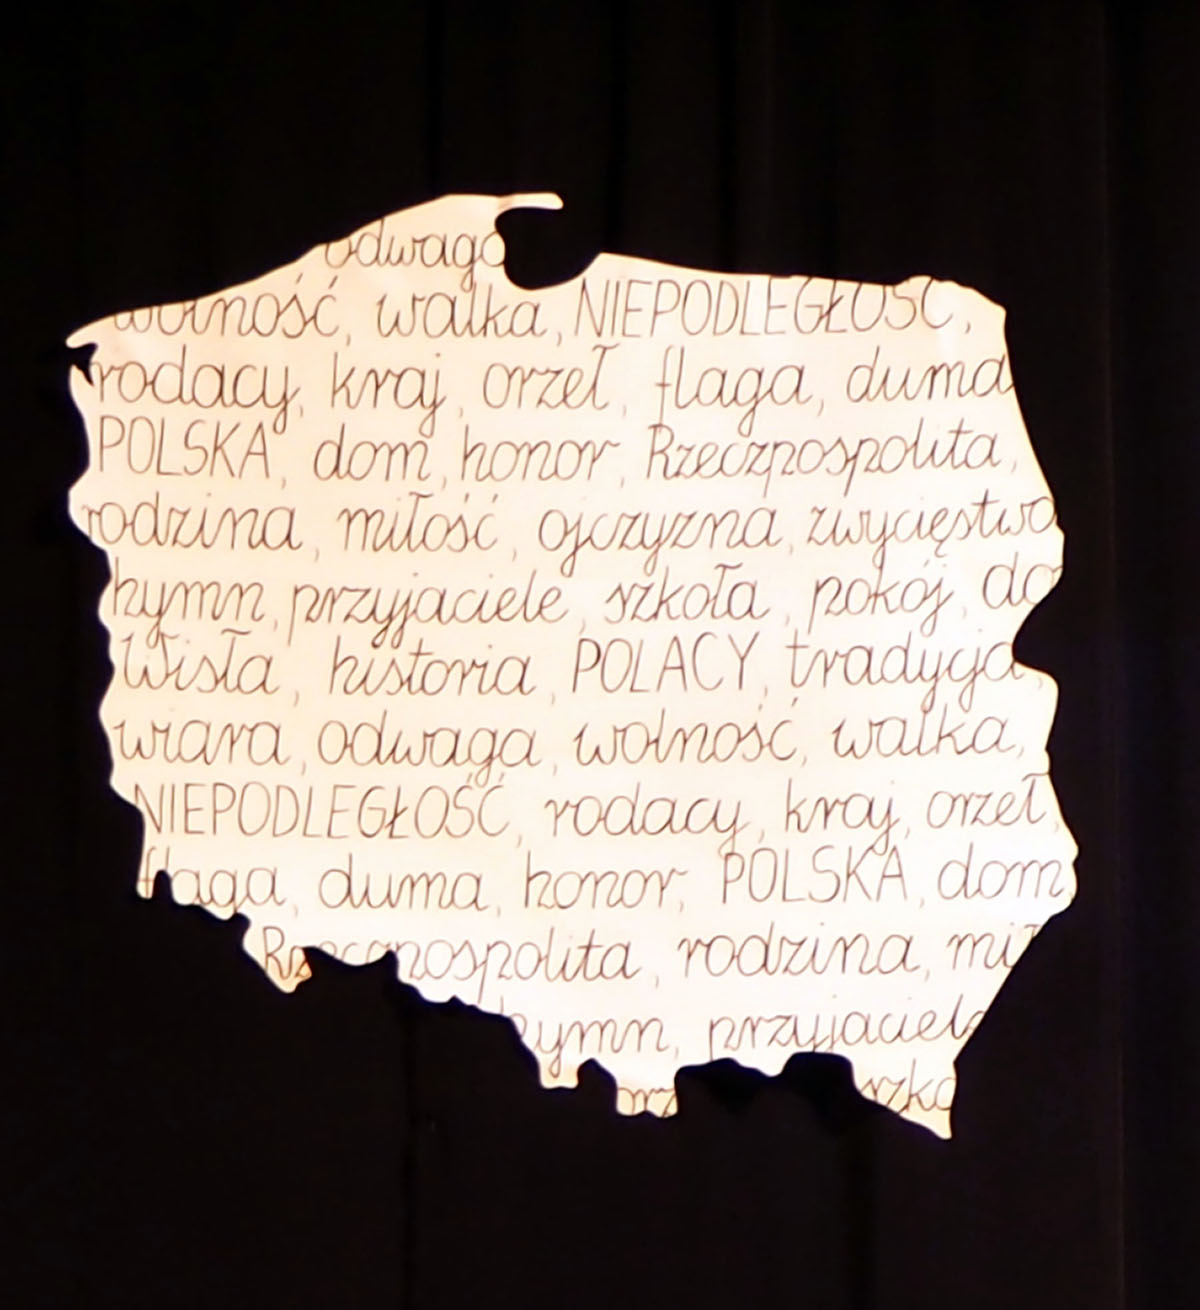 odwaga
wolność, walka, NIEPODLEGŁOŚĆ,
rodacy, kraj, orzeł, flaga, duma
POLSKA, dom, honor, Rzeczpospolita,
rodzina, miłość, ojczyzna, zwycięstwo
hymn, przyjaciele, szkoła, pokój, do
Wisła, historia, POLACY, tradycja,
wiara, odwaga, wolność, walka,
NIEPODLEGŁOŚĆ, rodacy, kraj, orzeł,
flaga, duma, honor, POLSKA, dom,
Rzeczpospolita, rodzina, mił
hymn, przyjaciele
szko